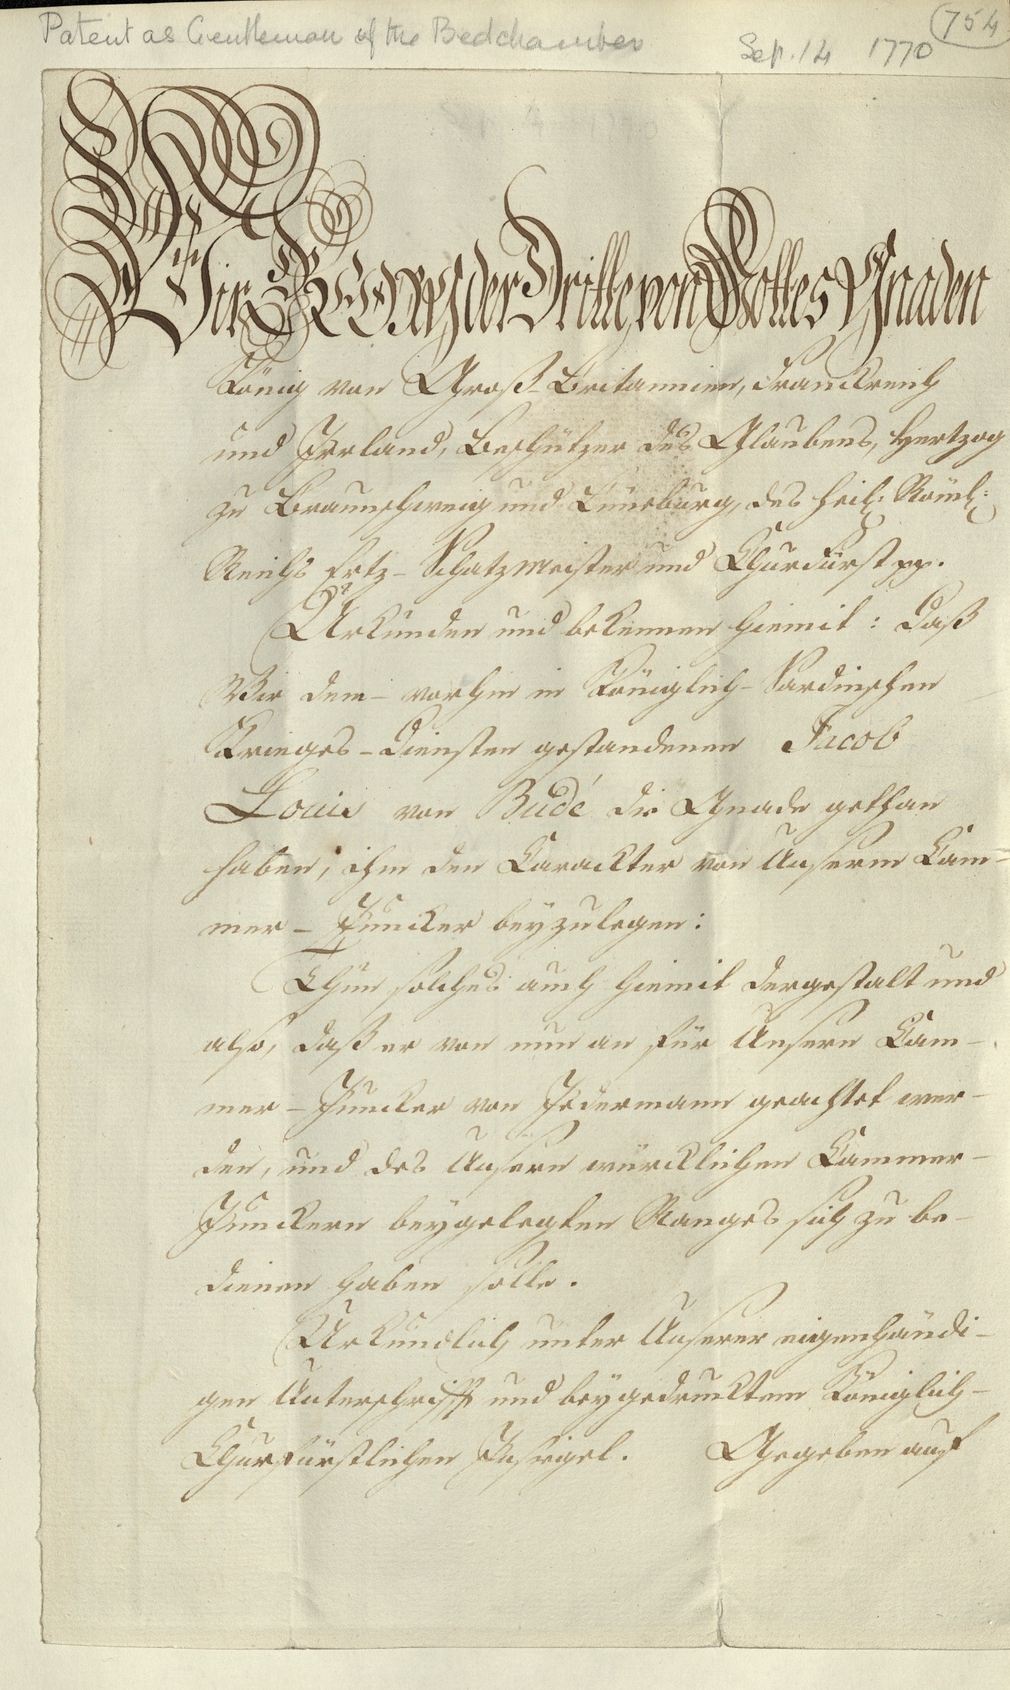 Patent as Gentleman of the Bedchamber
Sep. 14 1770
754
Wir GEORG der Dritte, von Gottes Gnaden
König von Groß-Britannien, Franckreich
und Irrland, Beschützer des Glaubens, Hertzog
zu Braunschweig und Lüneburg, des heil: Röm:
Reichs Ertz-Schatzmeister und Churfürst pp.
Urkunden und bekennen hiemit: Daß
Wir dem vorhin in Königlich-Sardinischen
Krieges-Diensten gestandenen Jacob
Louis von Budé die Gnade gethan
haben, ihm den Carackter von Unserm Cam-
mer-Juncker beyzulegen:
Thun solches auch hiemit dergestalt und
also, daß er von nun an für Unsern Cam-
mer-Juncker von Jedermann geachtet wer-
den, und des Unsern würcklichen Cammer-
Junckern beygelegten Ranges sich zu be-
dienen haben solle.
Urkundlich unter Unserer eigenhändi-
gen Unterschrifft und beygedrucktem Königlich-
Churfürstlichen Insiegel. Gegeben auf